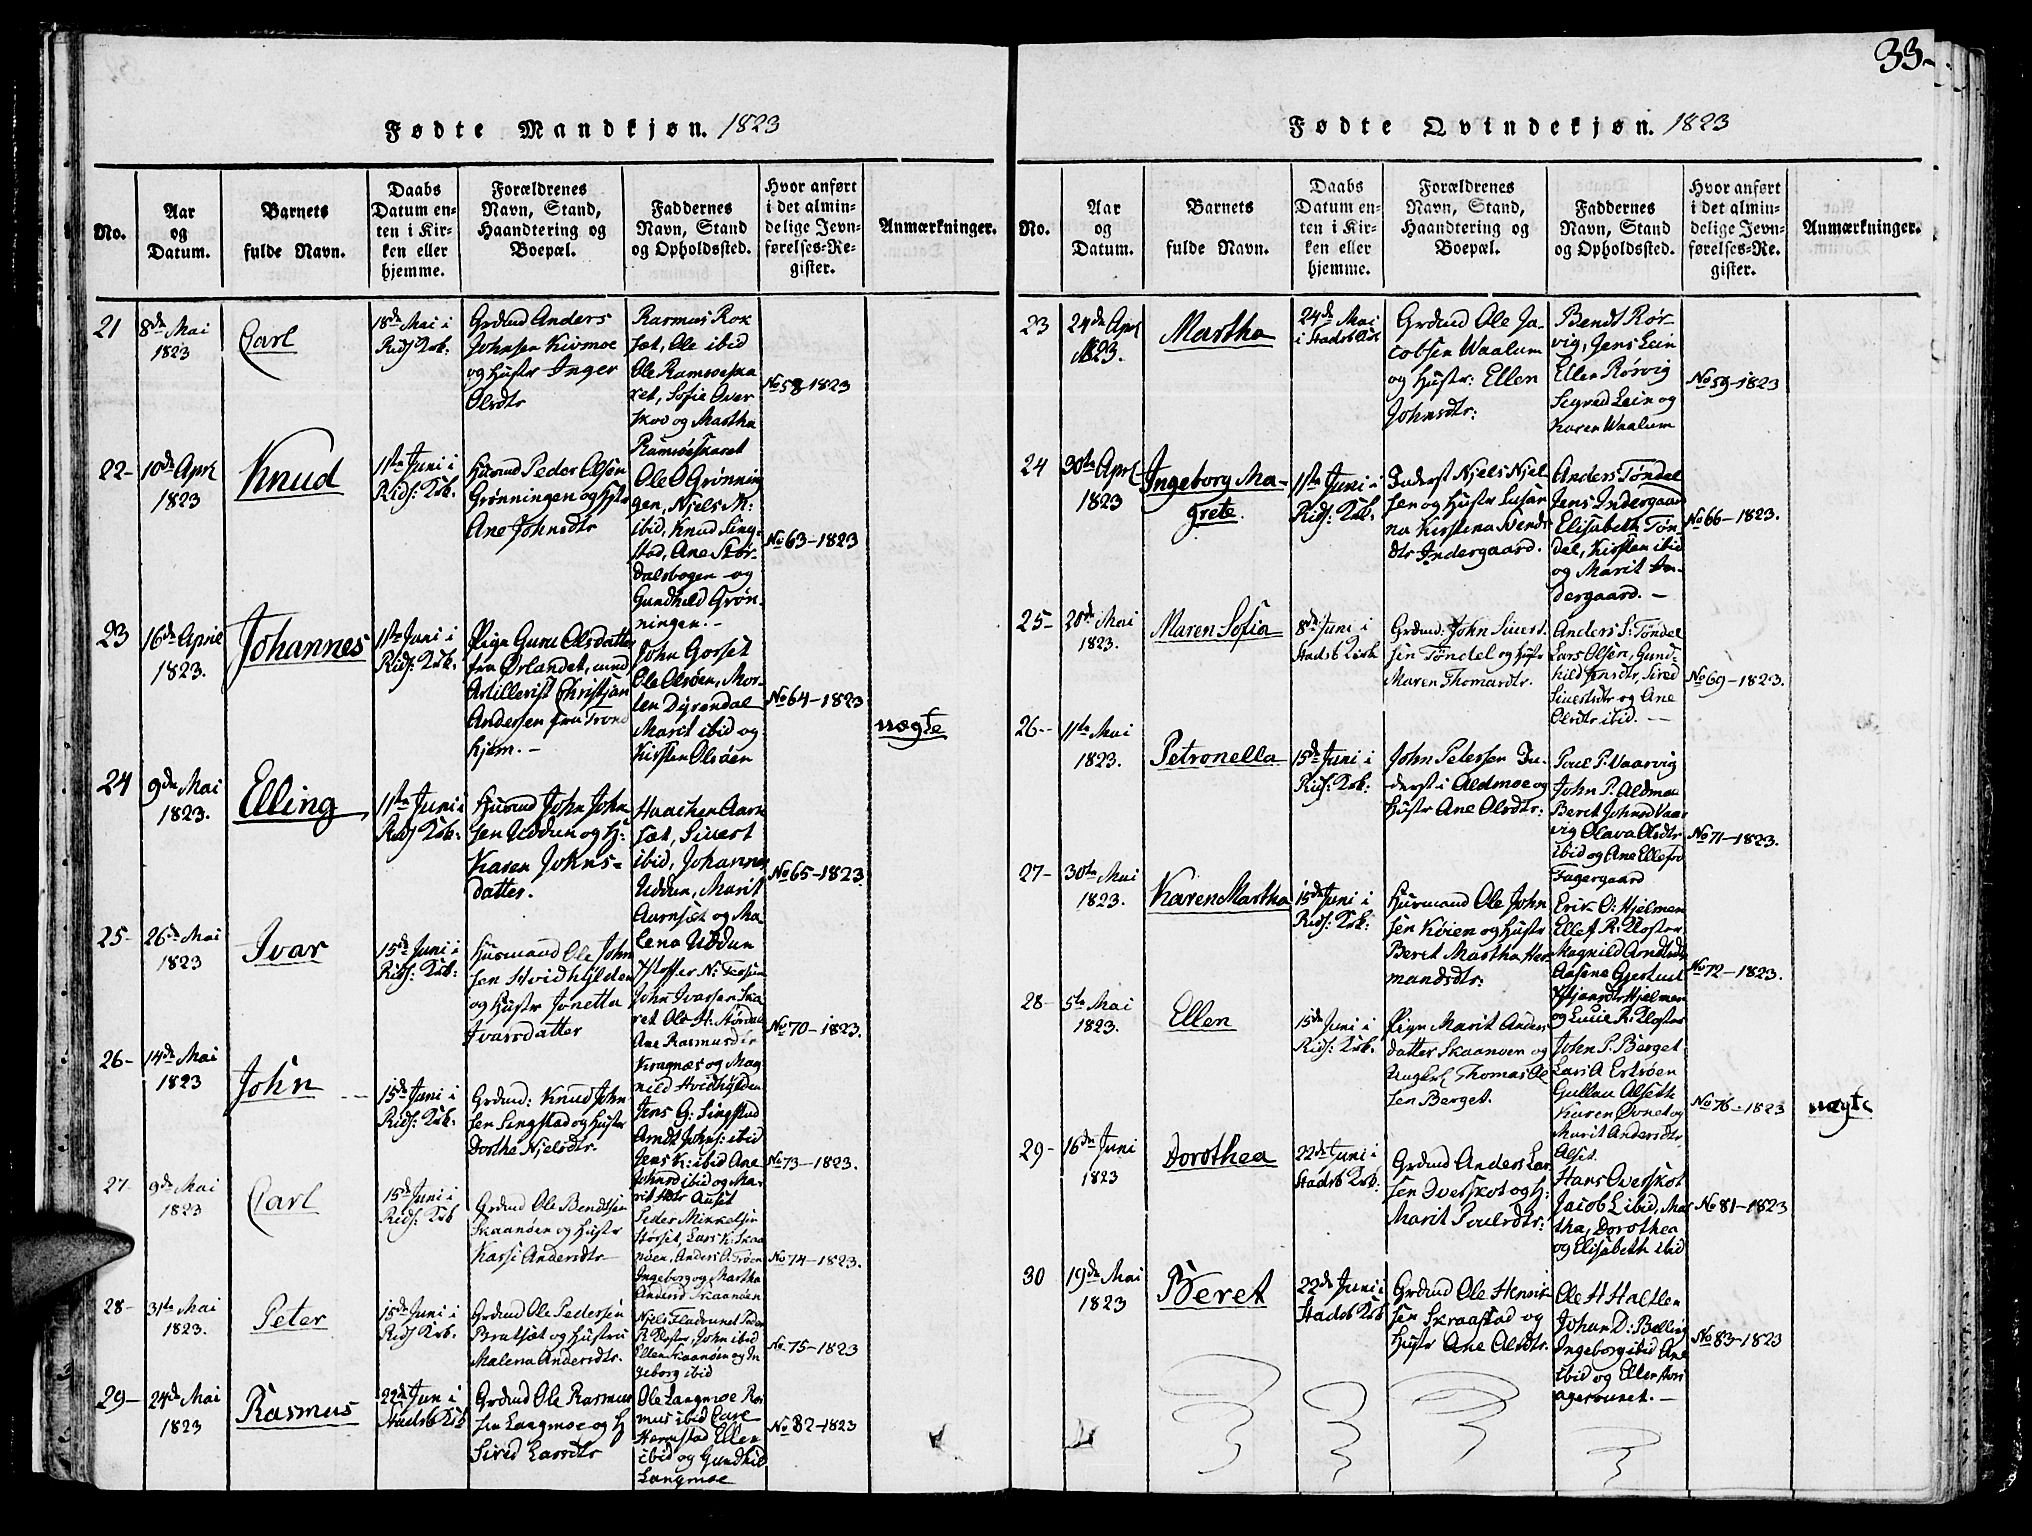 33-
Fødte Mandkjøn. 1823
No.
Aar
og
Datum.
Barnets
fulde Navn.
Daabs
Datum en-
ten i Kir-
ken eller
hjemme.
Forældrenes
Navn, Stand,
Haandtering og
Boepæl.
Faddernes
Navn, Stand
og Opholdssted.
Hvor anført
i det almin-
delige Jevn-
førelses-Re-
gister.
Anmærkninger.
21
8de Mai
1823
Carl
18de Mai i
Rids: Krk:
Grdmd Anders
Johnsen Kivmoe
og Hustr Inger
Olsdtr
Rasmus Rox
sæt, Ole ibid
Ole Ramsøeska
ret, Sofie Over
skov og Martha
Ramsøeskaret
No 58-1823
22-
10de Apri
1823
Knud
11te Juni i
Rids: Krk.
Husmd Peder Olsøn
Grønningen og Hstr
Ane Johnsdtr
Ole O Grønnin
gen, Njels M:
ibid, Knud Sing-
stad, Ane Stør-
dalsbogen og
Gundhild Grøn-
ningen.-
No 63-1823
23
16de April
1823.
Johannes
11te Juni i
Rids: Krk.
Pige Gunu Olsdatter
fra Ørlandet, med
Artillerist Christjan
Andersen fra Trond
hjem.-
John Gorset
Ole Olsøen, Mor-
ten Dyrendal
Marit ibid og
Kirsten Olsøen
No 64-1823
nægte
24
9de Mai
1823.
Elling
11te Juni i
Rids Krk:
Husmd John John
sen Uddun og H:
Karen Johns-
datter.
Haachen Aarn
sæt, Sivert
ibid, Johannes
Uddun, Marit
Aarnsæt og Ma
lena Uddun
No 65-1823
25-
26de Mai
1823
Ivar
15de Juni i
Rids: Krk:
Husmand Ole John
sen Hvidhylden
og Hustr Jonetta
Ivarsdatter
John Ivarsen Ska
ret Ole H: Størdal
Ane Rasmusdtr
Kragnæs og Mag
nild Hvidhylden
No 70-1823.
26-
14de Mai
1823
John
15de Juni i
Rids: Krk.
Grdmd: Knud John
sen Singstad og Hustr
Dorthe Njelsdtr.
Jens G: Singstad
Arndt Johns: ibid
Jens K: ibid Ane
Johnsd ibid og Ma
No 73-1823.
27-
9de Mai
1823
Carl
15de Juni i
Rids: Krk
Grdmd Ole Bendtsen
Skaanøen og Hustr
Kasse Andersdtr-
Peder Mikkelsen
Størset, Lars K: Skaa
nøen, Anders A: Trøen
Ingeborg og Martha
Andersd Skaanøen
No 74-1823.
28-
31te Mai
1823.
Peter
15de Juni i
Rids Krk.
Grdmd Ole Pedersen
Bratsæt og Hustru
Malena Andersdtr.
R Kloster, John ibid
Ellen Skaanøen og In
geborg ibid
No 75-1823
29-
24de Mai
1823
Rasmus
22de Juni i
Stadsb Krk
Grdmd Ole Rasmus
sen Langmoe og H
Sirid Larsdtr
Ole Langmoe Ras
mus ibid Carl
Hernstad Ellen
ibid og Gundhild
Langmoe
No 82-1823
Fødte Qvindekjøn. 1823
No.
Aar
og
Datum.
Barnets
fulde Navn.
Daabs
Datum en-
ten i Kir-
ken eller
hjemme.
Forældrenes
Navn, Stand,
Haandtering og
Boepæl.
Faddernes
Navn, Stand
og Opholdssted.
Hvor anført
i det almin-
delige Jevn-
førelses-Re-
gister.
Anmærkninger.
23
24de Apri
1823.
Martha
24de Mai
i Stadsb Krk
Grdmd Ole Ja-
cobsen Waalum
og Hustr: Ellen
Johnsdtr:
Bendt Rør-
vig, Jens Lein
Ellen Rørvig
Segred Lein og
Karen Waalum
No 59-1823
24
30te April
1823
Ingeborg Ma-
grete.
11te Juni i
Rids: Krk.
Inderst Njels Njel-
sen og Hustr Susan
na Kirstena Svends
dtr Indergaard.
Anders Tøndel
Jens Indergaard
Elisabeth Tøn
del, Kirsten ibid
og Marit In-
dergaard.-
No 66-1823.
25-
28de Mai
1823.
Maren Sofia
8de Juni i
Stadsb Kirk
Grdmd: John Siverts
sen Tøndel og Hustr
Maren Thomasdtr.
Anders S: Tøndel
Lars Olsen, Gund-
hild Jensdtr, Sired
Sivertsdtr og Ane
Olsdtr ibid.-
No 69-1823.
26-
11te Mai
1823.
Petronella
15de Juni i
Rids: Krk.
John Petersen In-
derst i Aldmoe og
Hustr Ane Olsdtr:
Poul P: Vaarvig
John P. Aldmoe
Beret Johnsd Vaar
vig Olava Olsdtr
ibid og Ane Ellefsd
Fagergaard
No 71-1823.
27-
30te Mai
1823.
Karen Martha
15de Juni i
Rids: Krk:
Husmand Ole John
sen Kvien og Hustr
Beret Martha Her
mandsdtr:
Erik O: Hjelmen
Ellef R: Kloster
Magnild Arndtsdtr
og Lucie R: Kloster
No 72-1823.
28-
5te Mai
1823.
Ellen
15de Juni i
Rids: Krk.
Pige Marit Anders
datter Skaanøen og
Ungkrl Thomas Ol
sen Berget.
John P: Berget
Lars A Ertsøen
Gullau Alseth
Karen Ovnet og
Marit Andersdtr
Alset.
No 76-1823
nægte
29-
16de Juni
1823
Dorothea
22de Juni i
Stadsb Krk.
Grdmd Anders Lar
sen Overskot og H:
Marit Poulsdtr:
Hans Overskot
Jacob L ibid, Mar
tha, Dorothea
og Elisabeth ibid
No 81-1823
30
19de Mai
1823
Beret
22de Juni i
Stadsb Krk
Grdmd Ole Henrik
sen Skraastad og
Hustr Ane Olsdtr.
Ole H Haltlen
Johan D: Belling
Ingeborg ibid Ane
ibid og Ellen
No 83-1823